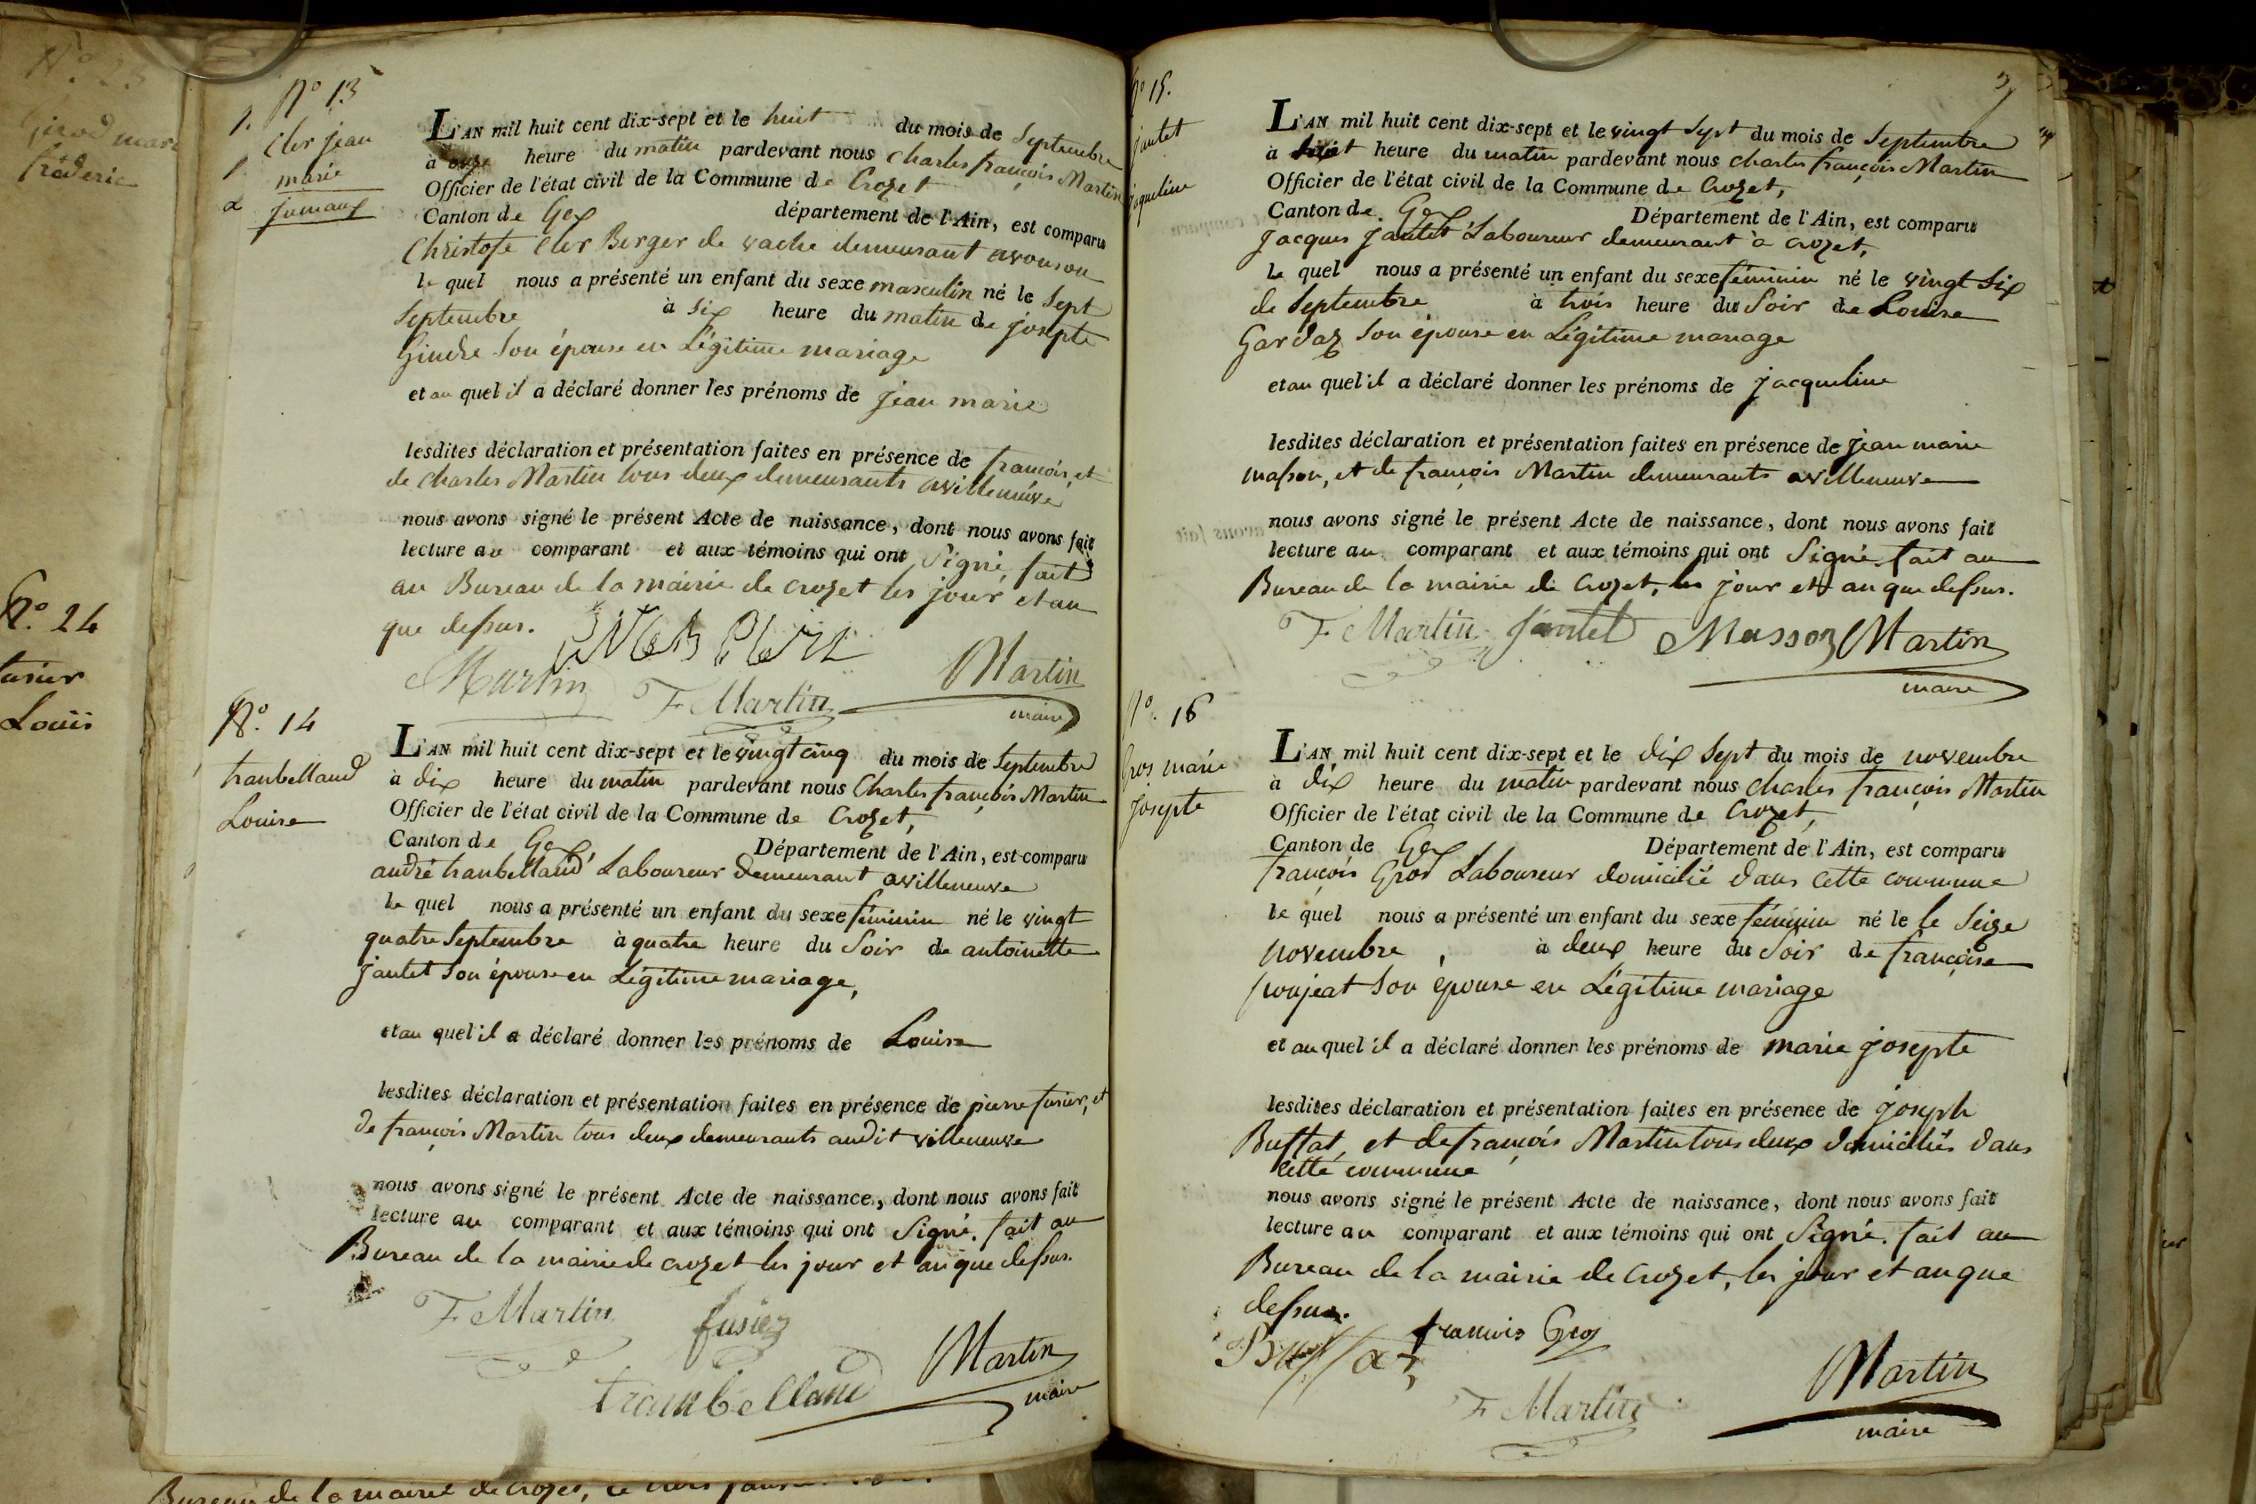 N° 13
Cler jean
marie
jumaux
L'AN mil huit cent dix-sept et le huit du mois de Septembre
à onze heure du matin pardevant nous Charles françois Martin
Officier de l'état civil de la Commune de Crozet
Canton de Gex département de l'Ain, est comparu
Christofe Cler Berger de vache demeurant avouson
le quel nous a présenté un enfant du sexe masculin né le Sept
Septembre à six heure du matin de josepte
Gindre Son épouse en Légitime mariage
et au quel il a déclaré donner les prénoms de jean marie
lesdites déclaration et présentation faites en présence de françois, et
de Charles Martin tous deux demeurants avilleneuve
nous avons signé le présent Acte de naissance, dont nous avons fait
lecture au comparant et aux témoins qui ont Signé, fait
au Bureau de la mairie de crozet les jour et an
que dessus.
Martin F Martin Martin
maire
N° 14
tranbelland
Louise
L'AN mil huit cent dix-sept et le vingt cinq du mois de Septembre
à dix heure du matin pardevant nous Charles françois Martin
Officier de l'état civil de la Commune de Crozet,
Canton de Gex Département de l'Ain, est comparu
andré tranbelland Laboureur demeurant avilleneuve
le quel nous a présenté un enfant du sexe féminin né le vingt
quatre Septembre à quatre heure du Soir de antoinette
jantet Son épouse en Légitime mariage,
et au quel il a déclaré donner les prénoms de Louise
lesdites déclaration et présentation faites en présence de pierre fusier, et
de françois Martin tous deux demeurants audit villeneuve
nous avons signé le présent Acte de naissance, dont nous avons fait
lecture au comparant et aux témoins qui ont Signé. fait au
Bureau de la mairie de crozet les jour et an que dessus.
F Martin fusiez
trambelland Martin
maire
N° 15.
jantet
jaqueline
L'AN mil huit cent dix-sept et le vingt Sept du mois de Septembre
à heure du matin pardevant nous Charles françois Martin
Officier de l'état civil de la Commune de Crozet,
Canton de Gex Département de l'Ain, est comparu
jacques jantet Laboureur demeurant à crozet,
le quel nous a présenté un enfant du sexe féminin né le vingt Six
de Septembre à trois heure du Soir de Louise
Gardaz Son épouse en Légitime mariage
et au quel il a déclaré donner les prénoms de jacqueline
lesdites déclaration et présentation faites en présence de jean marie
masson, et de françois Martin demeurants avilleneuve
nous avons signé le présent Acte de naissance, dont nous avons fait
lecture au comparant et aux témoins qui ont Signé fait au
Bureau de la mairie de Crozet, les jour et an que dessus.
F Martin Jantet Masson Martin
maire
N°. 16
Gros marie
josepte
L'AN mil huit cent dix-sept et le dix Sept du mois de novembre
à dix heure du matin pardevant nous Charles françois Martin
Officier de l'état civil de la Commune de Crozet,
Canton de Gex Département de l'Ain, est comparu
françois Gros Laboureur domicilié dans cette commune
le quel nous a présenté un enfant du sexe féminin né le le Seize
novembre, à deux heure du Soir de françoise
poujeat Son épouse en Légitime mariage
et au quel il a déclaré donner les prénoms de marie josepte
lesdites déclaration et présentation faites en présence de joseph
Buffat, et de françois Martin tous deux domiciliés dans
cette commune
nous avons signé le présent Acte de naissance, dont nous avons fait
lecture au comparant et aux témoins qui ont Signé. fait au
Bureau de la mairie de Crozet, les jour et an que
dessus.
francois Gros
F Martin Martin
maire
N°. 24
Louis